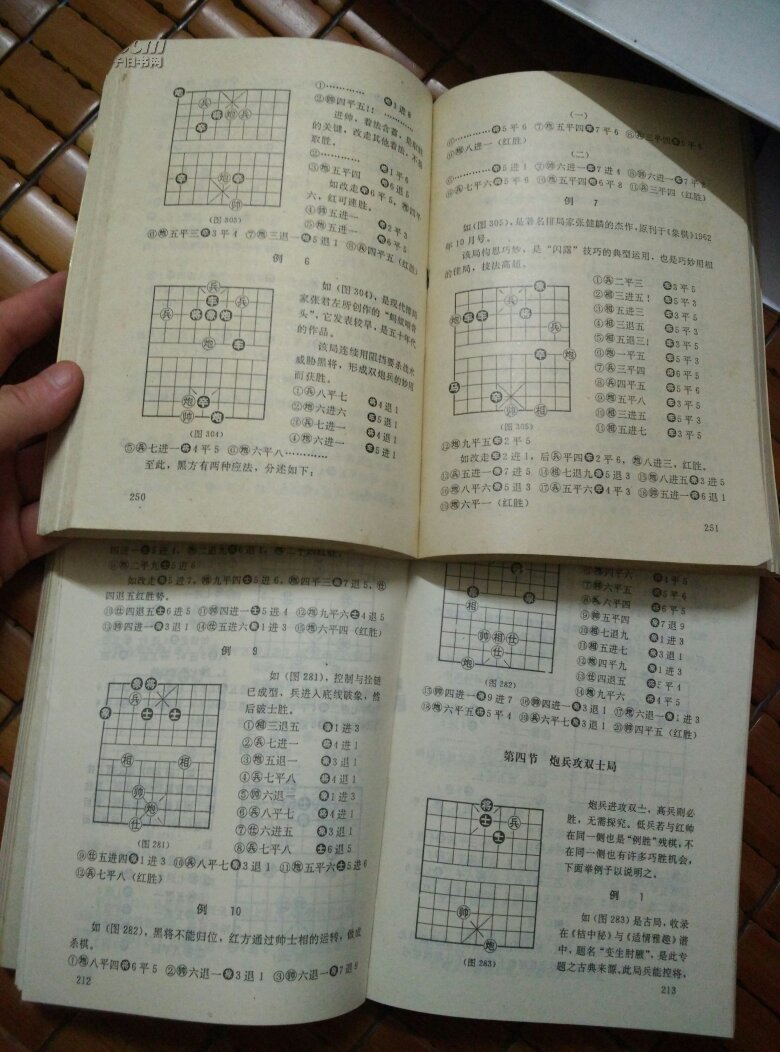 .com
子旧书网
①…………卒1进6
②帅四平五!!…………
进帅,着法含蓄,是取胜
的关键,改走其他着法,不能
取胜。
②…………卒1平6
③炮五平四 卒6退5
如改走卒6平5,炮四平
六,红可速胜。
④帅五进一 车2平3
⑤炮五进一 卒6平5
⑥炮五平三卒3平4 ⑦炮三退一卒5退1 ⑧兵四平五(红胜)
(图303)
例 6
如(图304),是现代排局
家张君左所创作的
头”,它发表较早,是五十年代
的作品。
该局连续用阻挡要杀战术
威胁黑将,形成双炮兵的妙用
而获胜。
①兵八平七 将4退1
②炮六进六 车5退1
③兵七进一 将4退1
④炮六进一 车5进1
(图304)
⑤兵七进一将4平5 ⑥炮六平八…………
至此,黑方有两种应法,分述如下:
250
(一)
⑥…………车5平6 ⑦炮五平四车7平6 ⑧炮三平四车5平6
⑪炮八进一(红胜)
(二)
⑥…………车5进1 ⑦帅六进一车7进4 ⑧帅六进一车7平8
⑨兵七平六车5平6 ⑩炮五平四车6平8 ⑪兵三平四(红胜)
例 7
如(图305),是著名排局家张健麟的杰作,原刊于《象棋》1962
年10月号。
该局构思巧妙,是“闪露”技巧的典型运用,也是巧妙用相
的佳局,技法高超。
①兵二平三 车3平5
②相三进五! 车5平3
③相五进三 车3平5
④相三退五 车5平3
⑤相五退三! 车3平5
⑥炮一平五 车5平3
⑦兵三平四 车3平5
⑧兵四平五 车5平6
⑨炮五平八 车6平3
⑩相三进五 车5平3
⑪相五进七 车3平5
(图305)
⑫炮九平五车2平5
如改走车2进1,后兵平四车2平6,炮八进三,红胜。
⑬兵五进一车7进5 ⑭相七退九车5退3 ⑮炮八进五车3进5
⑯炮八平六车5退3 ⑰兵五平六车4平3 ⑱帅五进一车6退1
⑲炮六平一(红胜)
251
⑨炮二平九士5进6
如改走卒5进7,炮九平四士5进6,炮四平三卒7退5,仕
四退五红胜势。
⑩仕四退五士6进5 ⑪帅四进一士5进4 ⑫炮九平六士4退5
⑬帅四进一象3退1 ⑭仕五进六象1进3 ⑮炮六平四(红胜)
例 9
如(图281),控制与拴链
已成型,兵进入底线破象,然
后破士胜。
①相三退五 象1进3
②兵七进一 将4进1
③炮五退一 象3退1
④兵七平八 将4退1
⑤帅六退一 象1进3
⑥兵八平七 将4进1
⑦仕六进五 象3退1
⑧兵七平八 士6退5
(图281)
⑨仕五进四象1进3 ⑩兵八平七象3退1 ⑪炮五平六士5进6
⑫兵七平八(红胜)
例 10
如(图282),黑将不能归位,红方通过帅士相的运转,做成
杀棋。
①炮八平四将6平5 ②帅六退一象3退1 ③帅六退一象7退9
212
④炮四平六 将5平4
⑨帅五平四 象7退9
⑩相七退九 象1进3
⑪相五退七 象3退1
⑫炮四平九 象1进3
⑬仕四退五 将5平4
⑭炮九平六 将4平5
(图282)
⑮帅四进一象9进7 ⑯帅四进一象3退1 ⑰炮六退一象1进3
⑱炮六平五将5平4 ⑲兵六平七象3退1 ⑳帅四平五(红胜)
第四节 炮兵攻双士局
炮兵进攻双士,高兵则必
胜,无需探究。低兵若与红帅
在同一侧也是“例胜”残棋,不
在同一侧也有许多巧胜机会,
下面举例予以说明之。
例 1
如(图283)是古局,收录
在《桔中秘》与《适情雅趣》谱
中,题名“变生肘腋”,是此专
题之古典来源。此局兵能控将,
(图283)
213